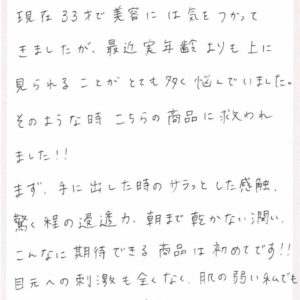 現在33才で美容には気をつかって
きましたが、最近実年齢よりも上に
見られることがとても多く悩んでいました。
そのような時こちらの商品に救われ
ました!!
まず、手に出した時のサラッとした感触、
驚く程の浸透力、朝まで乾かない潤い、
こんなに期待できる商品は初めてです!!
目元への刺激も全くなく、肌の弱い私でも